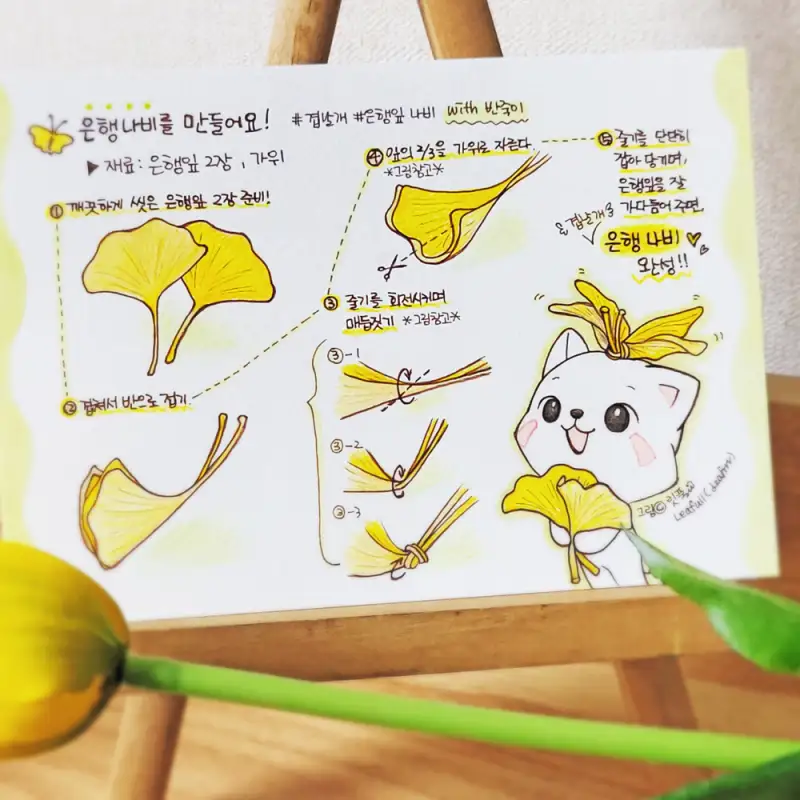 은행나비를 만들어요! #겹날개 #은행잎 나비 with 반죽이
▶ 재료: 은행잎 2장, 가위
① 깨끗하게 씻은 은행잎 2장 준비!
② 겹쳐서 반으로 접기
③ 줄기를 회전시키며
매듭짓기 *그림참고*
③-1
③-2
③-3
④ 잎의 2/3을 가위로 자른다.
*그림참고*
⑤ 줄기를 단단히
잡아 당기며,
은행잎을 잘
가다듬어 주면,
겹날개
은행 나비
완성!!
그림ⓒ
Leafull